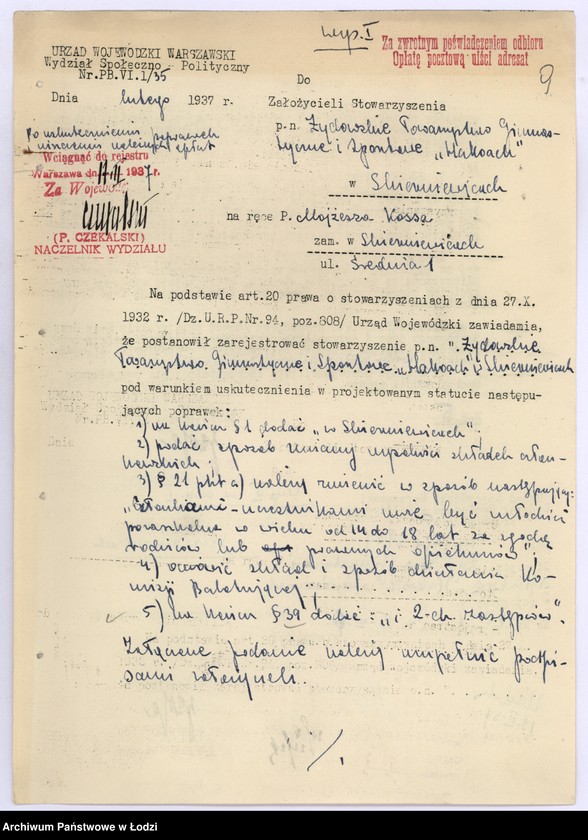 wyp. I
Za zwrotnym poświadczeniem odbioru
Opłatę pocztową uiści adresat
9
URZĄD WOJEWÓDZKI WARSZAWSKI
Wydział Społeczno - Polityczny
Nr.PB.VI.1/35
Dnia lutego 1937 r.
Po uskutecznieniu poprawek
i uiszczeniu należnych opłat
Wciągnąć do rejestru
Warszawa dn. 1937 r.
Za Wojewodę
(P. CZEKALSKI)
NACZELNIK WYDZIAŁU
Do
Założycieli Stowarzyszenia
p.n. Żydowskie Towarzystwo Gimnas-
tyczne i Sportowe „Hakoach"
w Skierniewicach
na ręce P. Mojżesza Kossa
zam. w Skierniewicach
ul. Średnia 1
Na podstawie art.20 prawa o stowarzyszeniach z dnia 27.X.
1932 r. /Dz.U.R.P.Nr.94, poz.808/ Urząd Wojewódzki zawiadamia,
że postanowił zarejestrować stowarzyszenie p.n. ". Żydowskie
Towarzystwo Gimnastyczne i Sportowe „Hakoach" w Skierniewicach
pod warunkiem uskutecznienia w projektowanym statucie następu-
jących poprawek:
1) na końcu § 1 dodać „w Skierniewicach".
2) podać sposób zmiany wysokości składek człon-
kowskich;
3) § 21 pkt a) należy zmienić w sposób następujący:
„Członkami-uczestnikami może być młodzież
pozaszkolna w wieku od 14 do 18 lat za zgodą
rodziców lub prawnych opiekunów";
4) omówić skład i sposób działania Ko-
misji Balotującej;
5) na końcu § 39 dodać: „i 2-ch zastępców".
Załączone podanie należy uzupełnić podpi-
sami założycieli.
Archiwum Państwowe w Łodzi